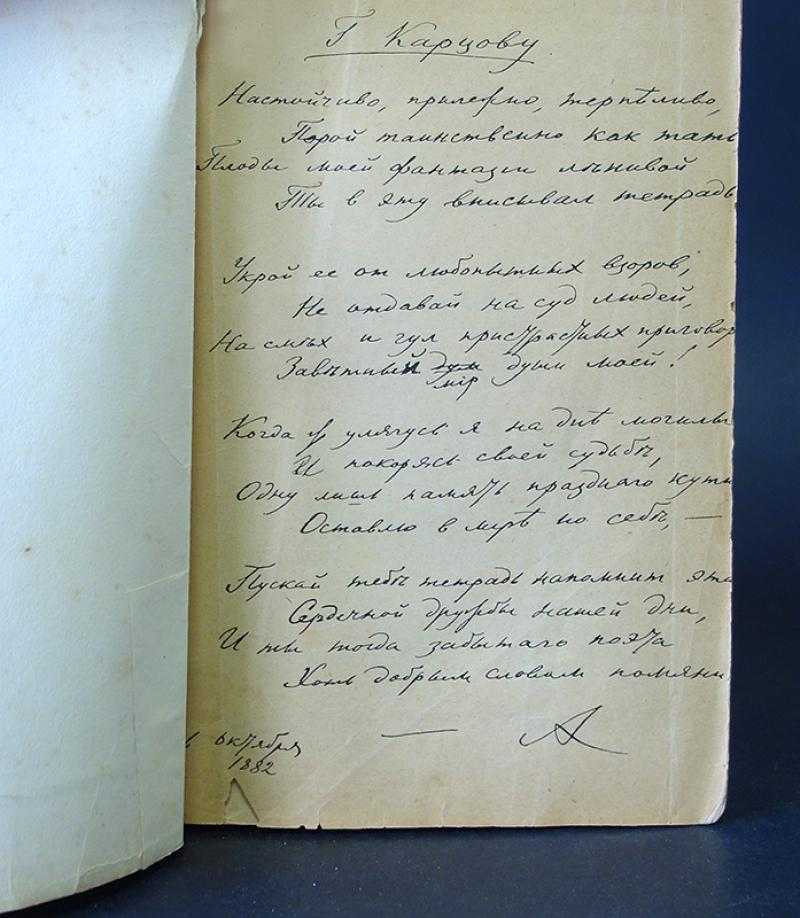 Г Карцову
Настойчиво, прилежно, терпѣливо,
Порой таинственно как тать
Плоды моей фантазии лѣнивой
Ты в эту вписывал тетрадь
Укрой ее от любопытных взоров,
Не отдавай на суд людей,
На смѣх и гул пристрастных приговор
Завѣтный дум души моей!
мір
Когда улягусь я на днѣ могилы
И покорясь своей судьбѣ,
Одну лишь память празднаго кути
Оставлю в мірѣ по себѣ, —
Пускай тебѣ тетрадь напомнит эта
Сердечной дружбы нашей дни,
И ты тогда забытаго поэта
Хоть добрым словом помяни
— А
октября
1882